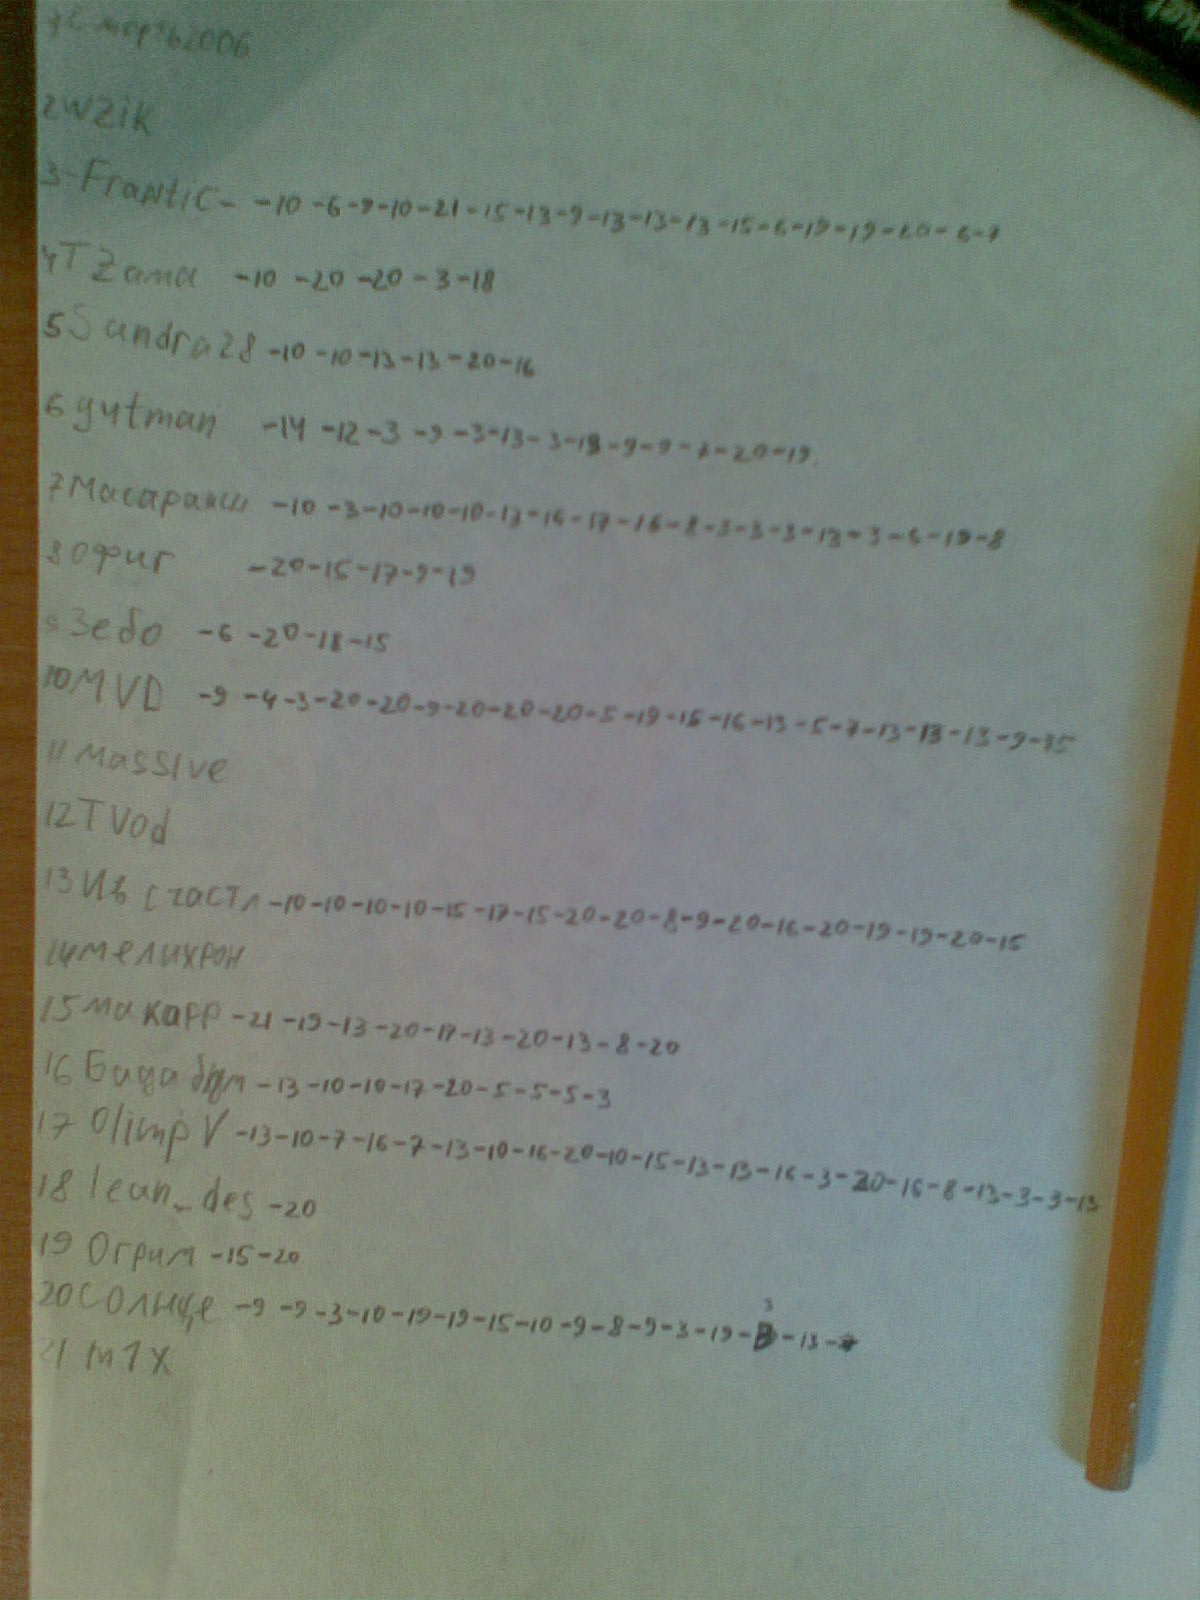 1Смерть2006
2WZik
3-Frantic- -10 -6-9-10-21-15-13-9-13-13-13-15-6-19-19-20-6-7
4TZama -10 -20 -20 -3-18
5Sandra28 -10 -10-13-13-20-16
6gutman -14 -12-3 -9 -3-13-3-18-9-9-7-20-19.
7Масаракш -10 -3-10-10-10-13-16-17-16-8-3-3-3-13-3-6-19-8
8Офиг -20-15-17-9-19
9Зебо -6 -20-18-15
10MVD -9 -4-3-20-20-9-20-20-20-5-19-15-16-13-5-7-13-13-13-9-15
11Massive
12TVod
13Ив счастл-10-10-10-10-15-17-15-20-20-8-9-20-16-20-19-19-20-15
14мелихрон
15макарр -21 -19-13-20-17-13-20-13-8-20
16 -13-10-10-17-20-5-5-5-3
17 OlimpV -13-10-7-16-7-13-10-16-20-10-15-13-13-16-3-20-16-8-13-3-3-13
18 lean_des -20
19 Огрим -15-20
20Солнце -9 -9 -3-10-19-19-15-10-9-8-9-3-19- 3 -13-
21 m1x